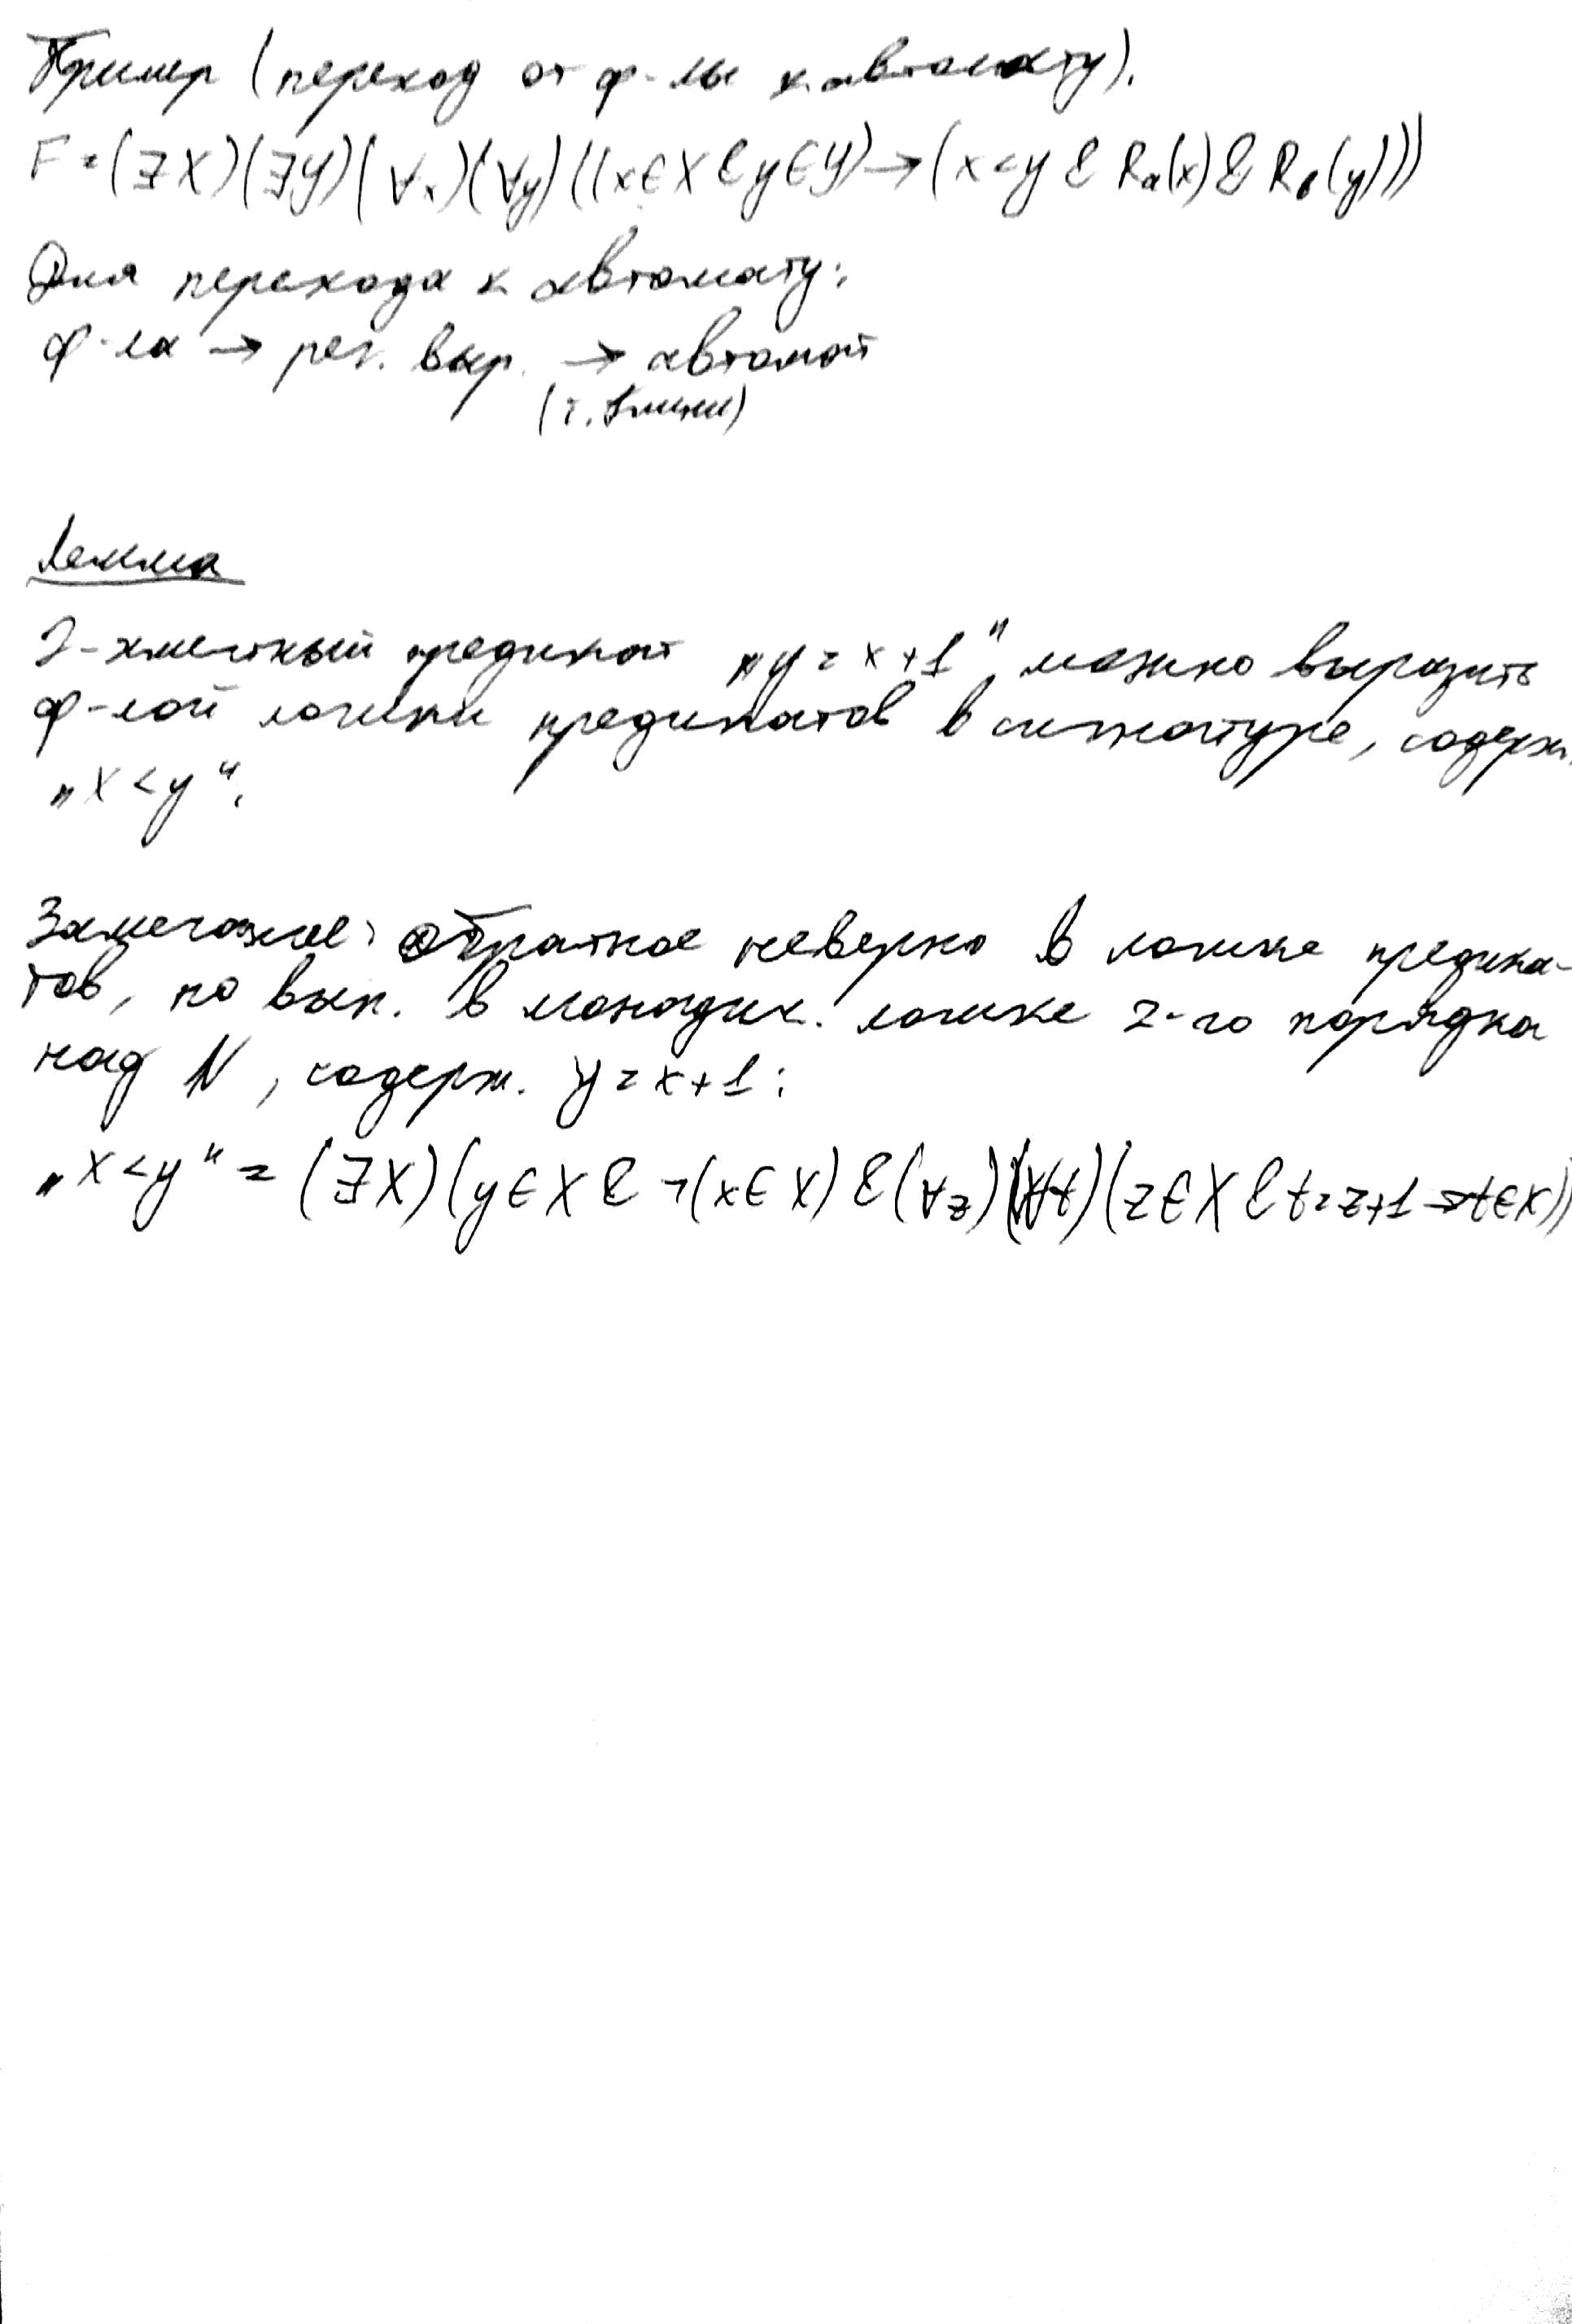 Пример (переход от ф-лы к автомату).
F = (∃X)(∃Y)(∀x)(∀y)((x∈X & y∈Y) → (x<y & Rₐ(x) & R_b(y)))
Для перехода к автомату:
ф-ла → рег. выр. → автомат
(т. Клини)
Лемма
2-хместный предикат „y = x+1" можно выразить
ф-лой логики предикатов в сигнатуре, содерж.
„x < y".
Замечание: Обратное неверно в логике предика-
тов, но вып. в монадич. логике 2-го порядка
над N, содерж. y = x+1:
„x<y" = (∃X)(y∈X & ¬(x∈X) & (∀z)(∀t)(z∈X & t=z+1 → t∈X))